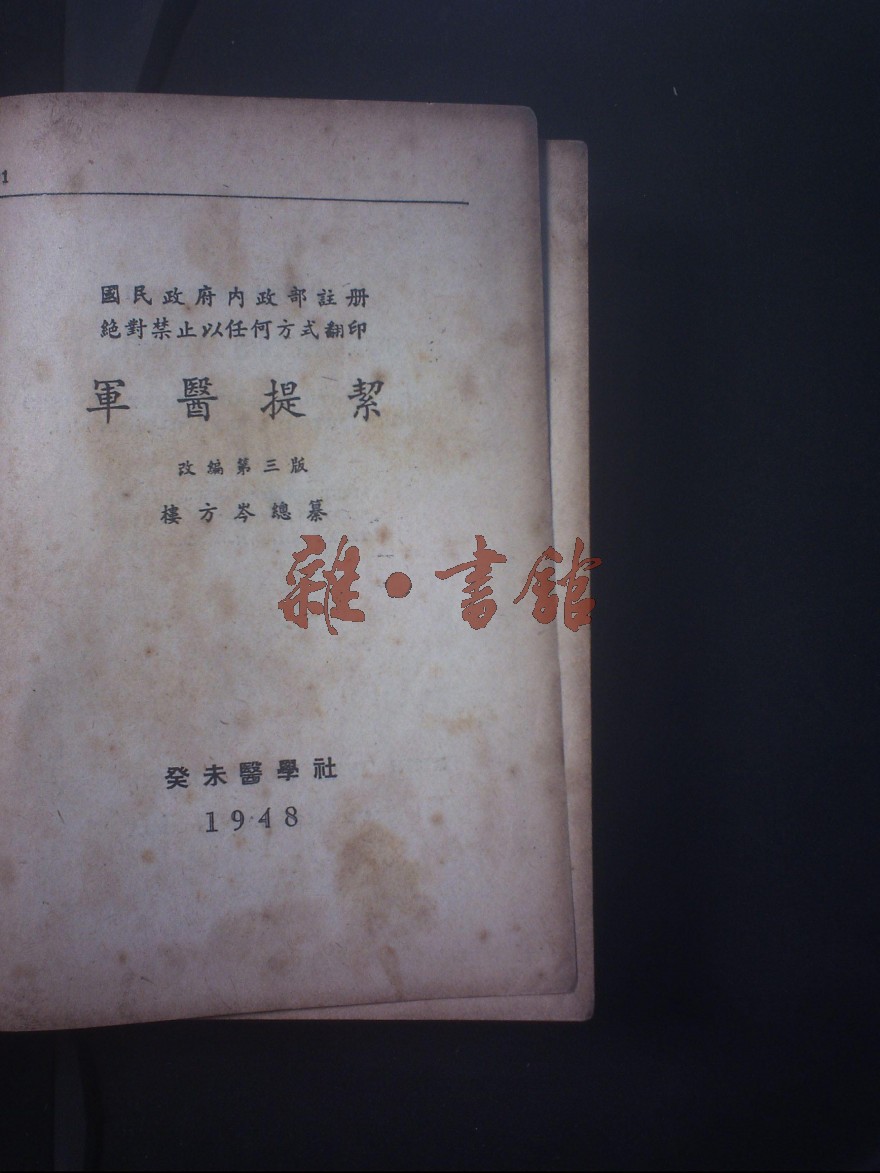 1
國民政府內政部註册
絕對禁止以任何方式翻印
軍醫提絜
改編第三版
樓方岑總纂
雜·書館
癸未醫學社
1948